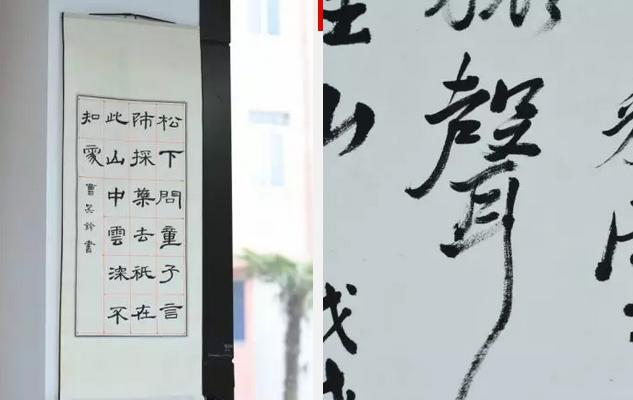 松下問童子言
師採藥去祇在
此山中雲深不
知處
書
聲
山